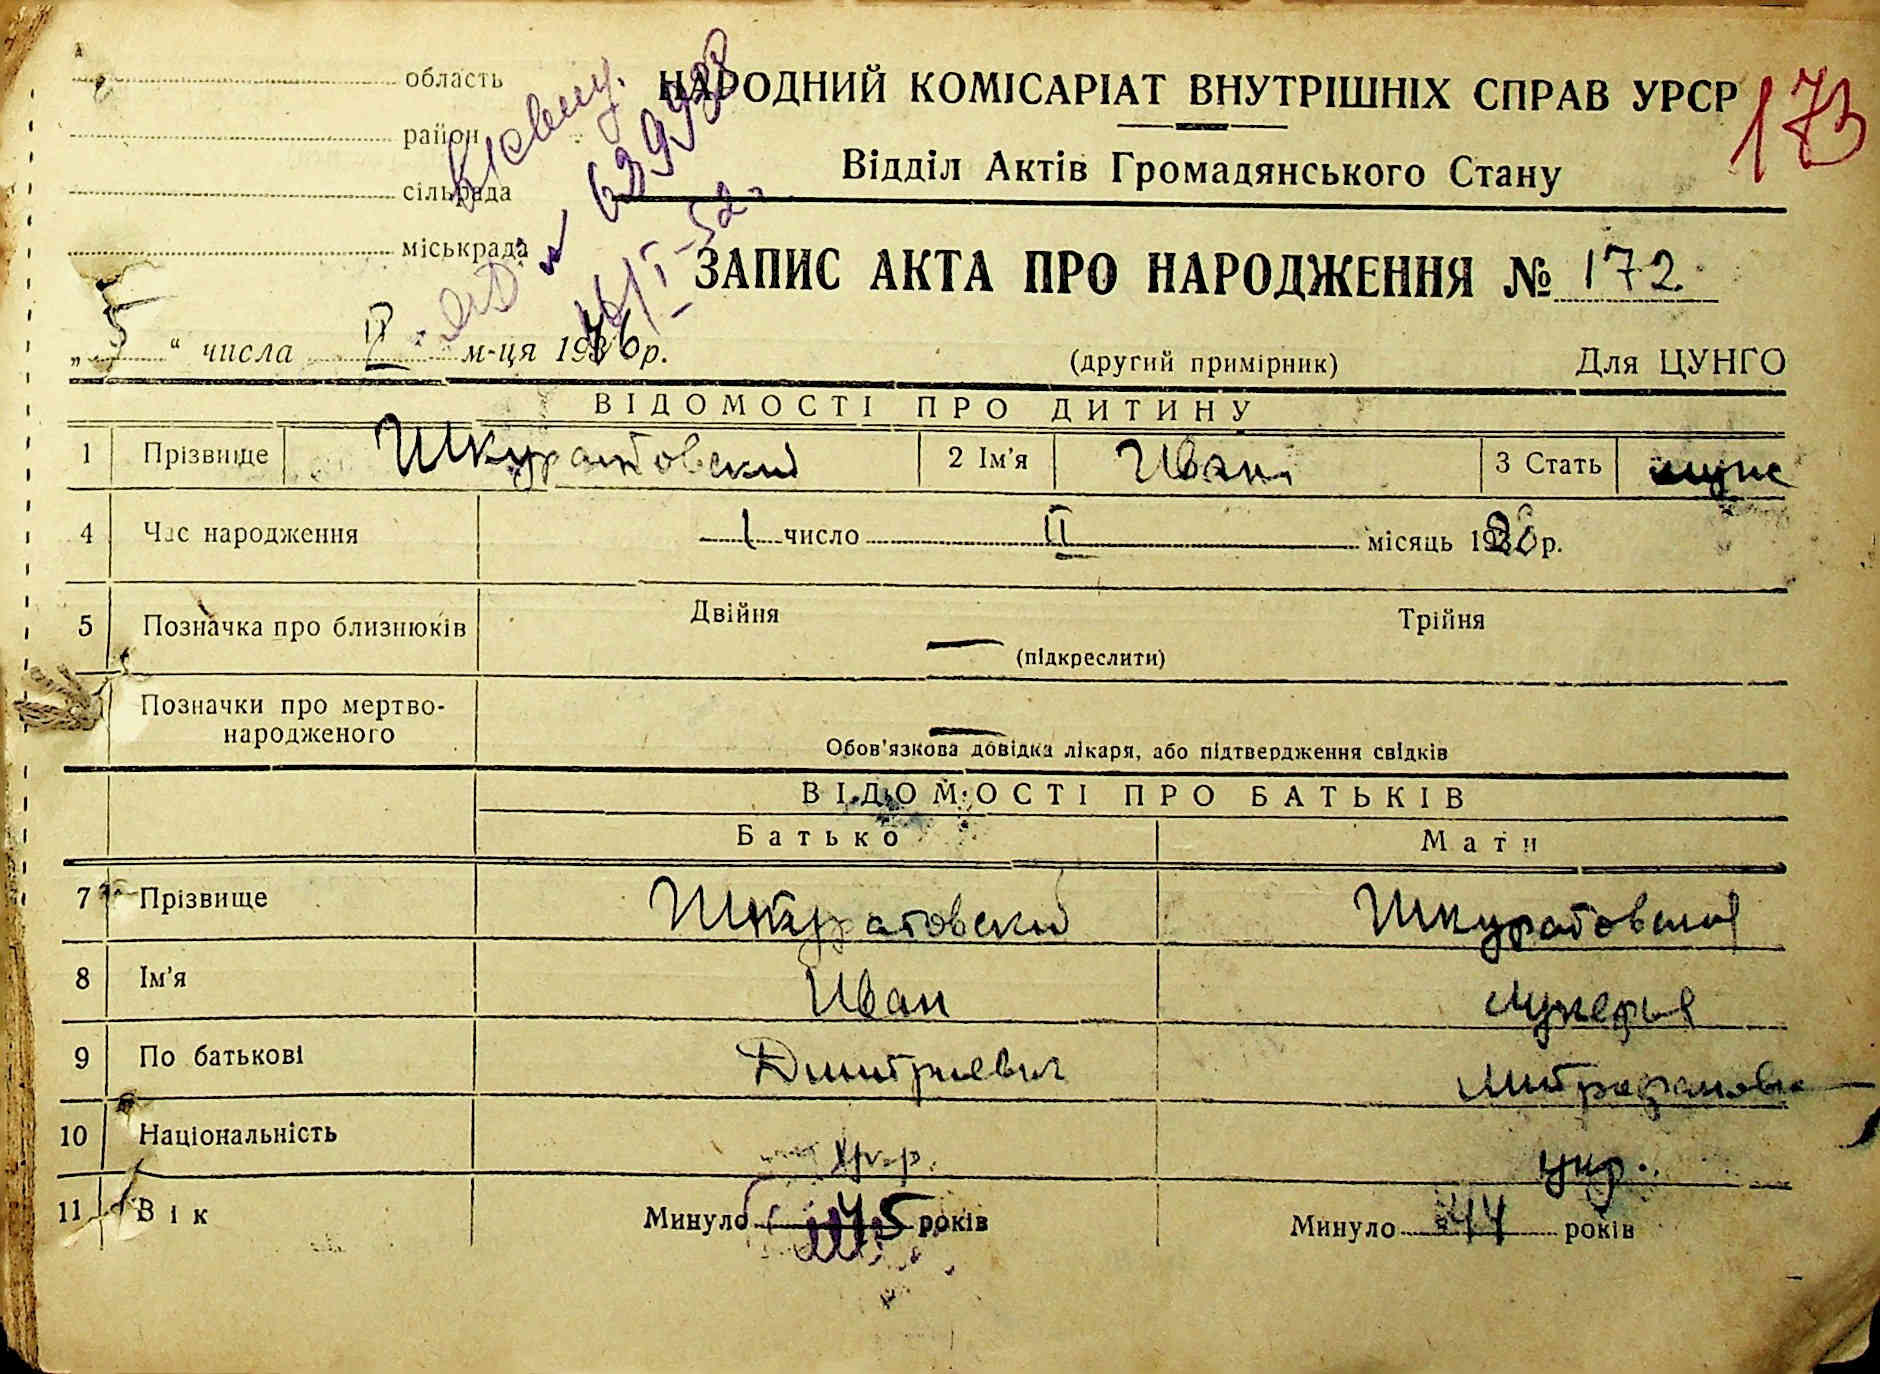 область
район
сільрада
міськрада
НАРОДНИЙ КОМІСАРІАТ ВНУТРІШНІХ СПРАВ УРСР
173
Відділ Актів Громадянського Стану
639938
ЗАПИС АКТА ПРО НАРОДЖЕННЯ № 172
„ 5 “ числа II м-ця 19 р.
(другий примірник)
Для ЦУНГО
ВІДОМОСТІ ПРО ДИТИНУ
1 Прізвище Шкуратовский 2 Ім'я Иван 3 Стать муж
4 Час народження 1 число II місяць 19 р.
5 Позначка про близнюків Двійня Трійня
(підкреслити)
Позначки про мертво-
народженого
Обов'язкова довідка лікаря, або підтвердження свідків
ВІДОМОСТІ ПРО БАТЬКІВ
Батько Мати
7 Прізвище Шкуратовский Шкуратовская
8 Ім'я Иван Лукерья
9 По батькові Дмитриевич Митрофановна
10 Національність укр. укр.
11 Вік Минуло 45 років Минуло 44 років